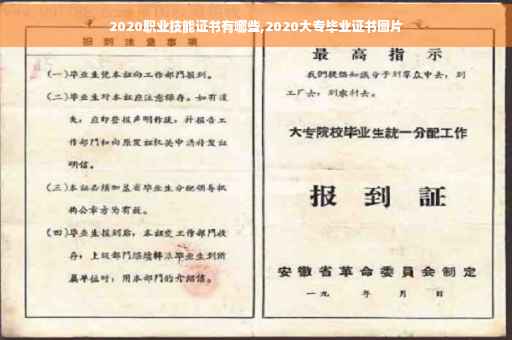 2020职业技能证书有哪些,2020大专毕业证书图片
报到注意事项
(一)毕业生凭本证向工作部门报到。
(二)毕业生对本证应注意保存。如有遗
失,应即登报声明作废,并报告工
作部门和向原发证机关申请补发证
明信。
(三)本证必须加盖省毕业生分配领导机
构公章方为有效。
(四)毕业生报到后,本证交工作部门收
存;上级部门
属单位时,用本部门的介绍信。
最高指示
我们提倡知识分子到群众中去,到
工厂去,到农村去。
大专院校毕业生統一分配工作
报到証
安徽省革命委員会制定
一九 年 月 日